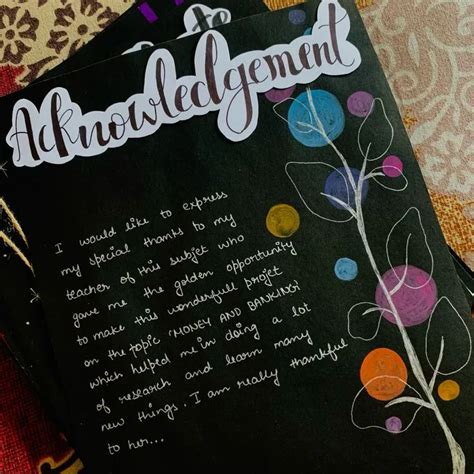 Acknowledgement
I would like to express
my special thanks to my
teacher of this subjet who
gave me the golden opportunity
to make this wonderfull projet
on the topic 'MONEY AND BANKING'
which helped me in doing a lot
of research and learn many
new things. I am really thankful
to her...